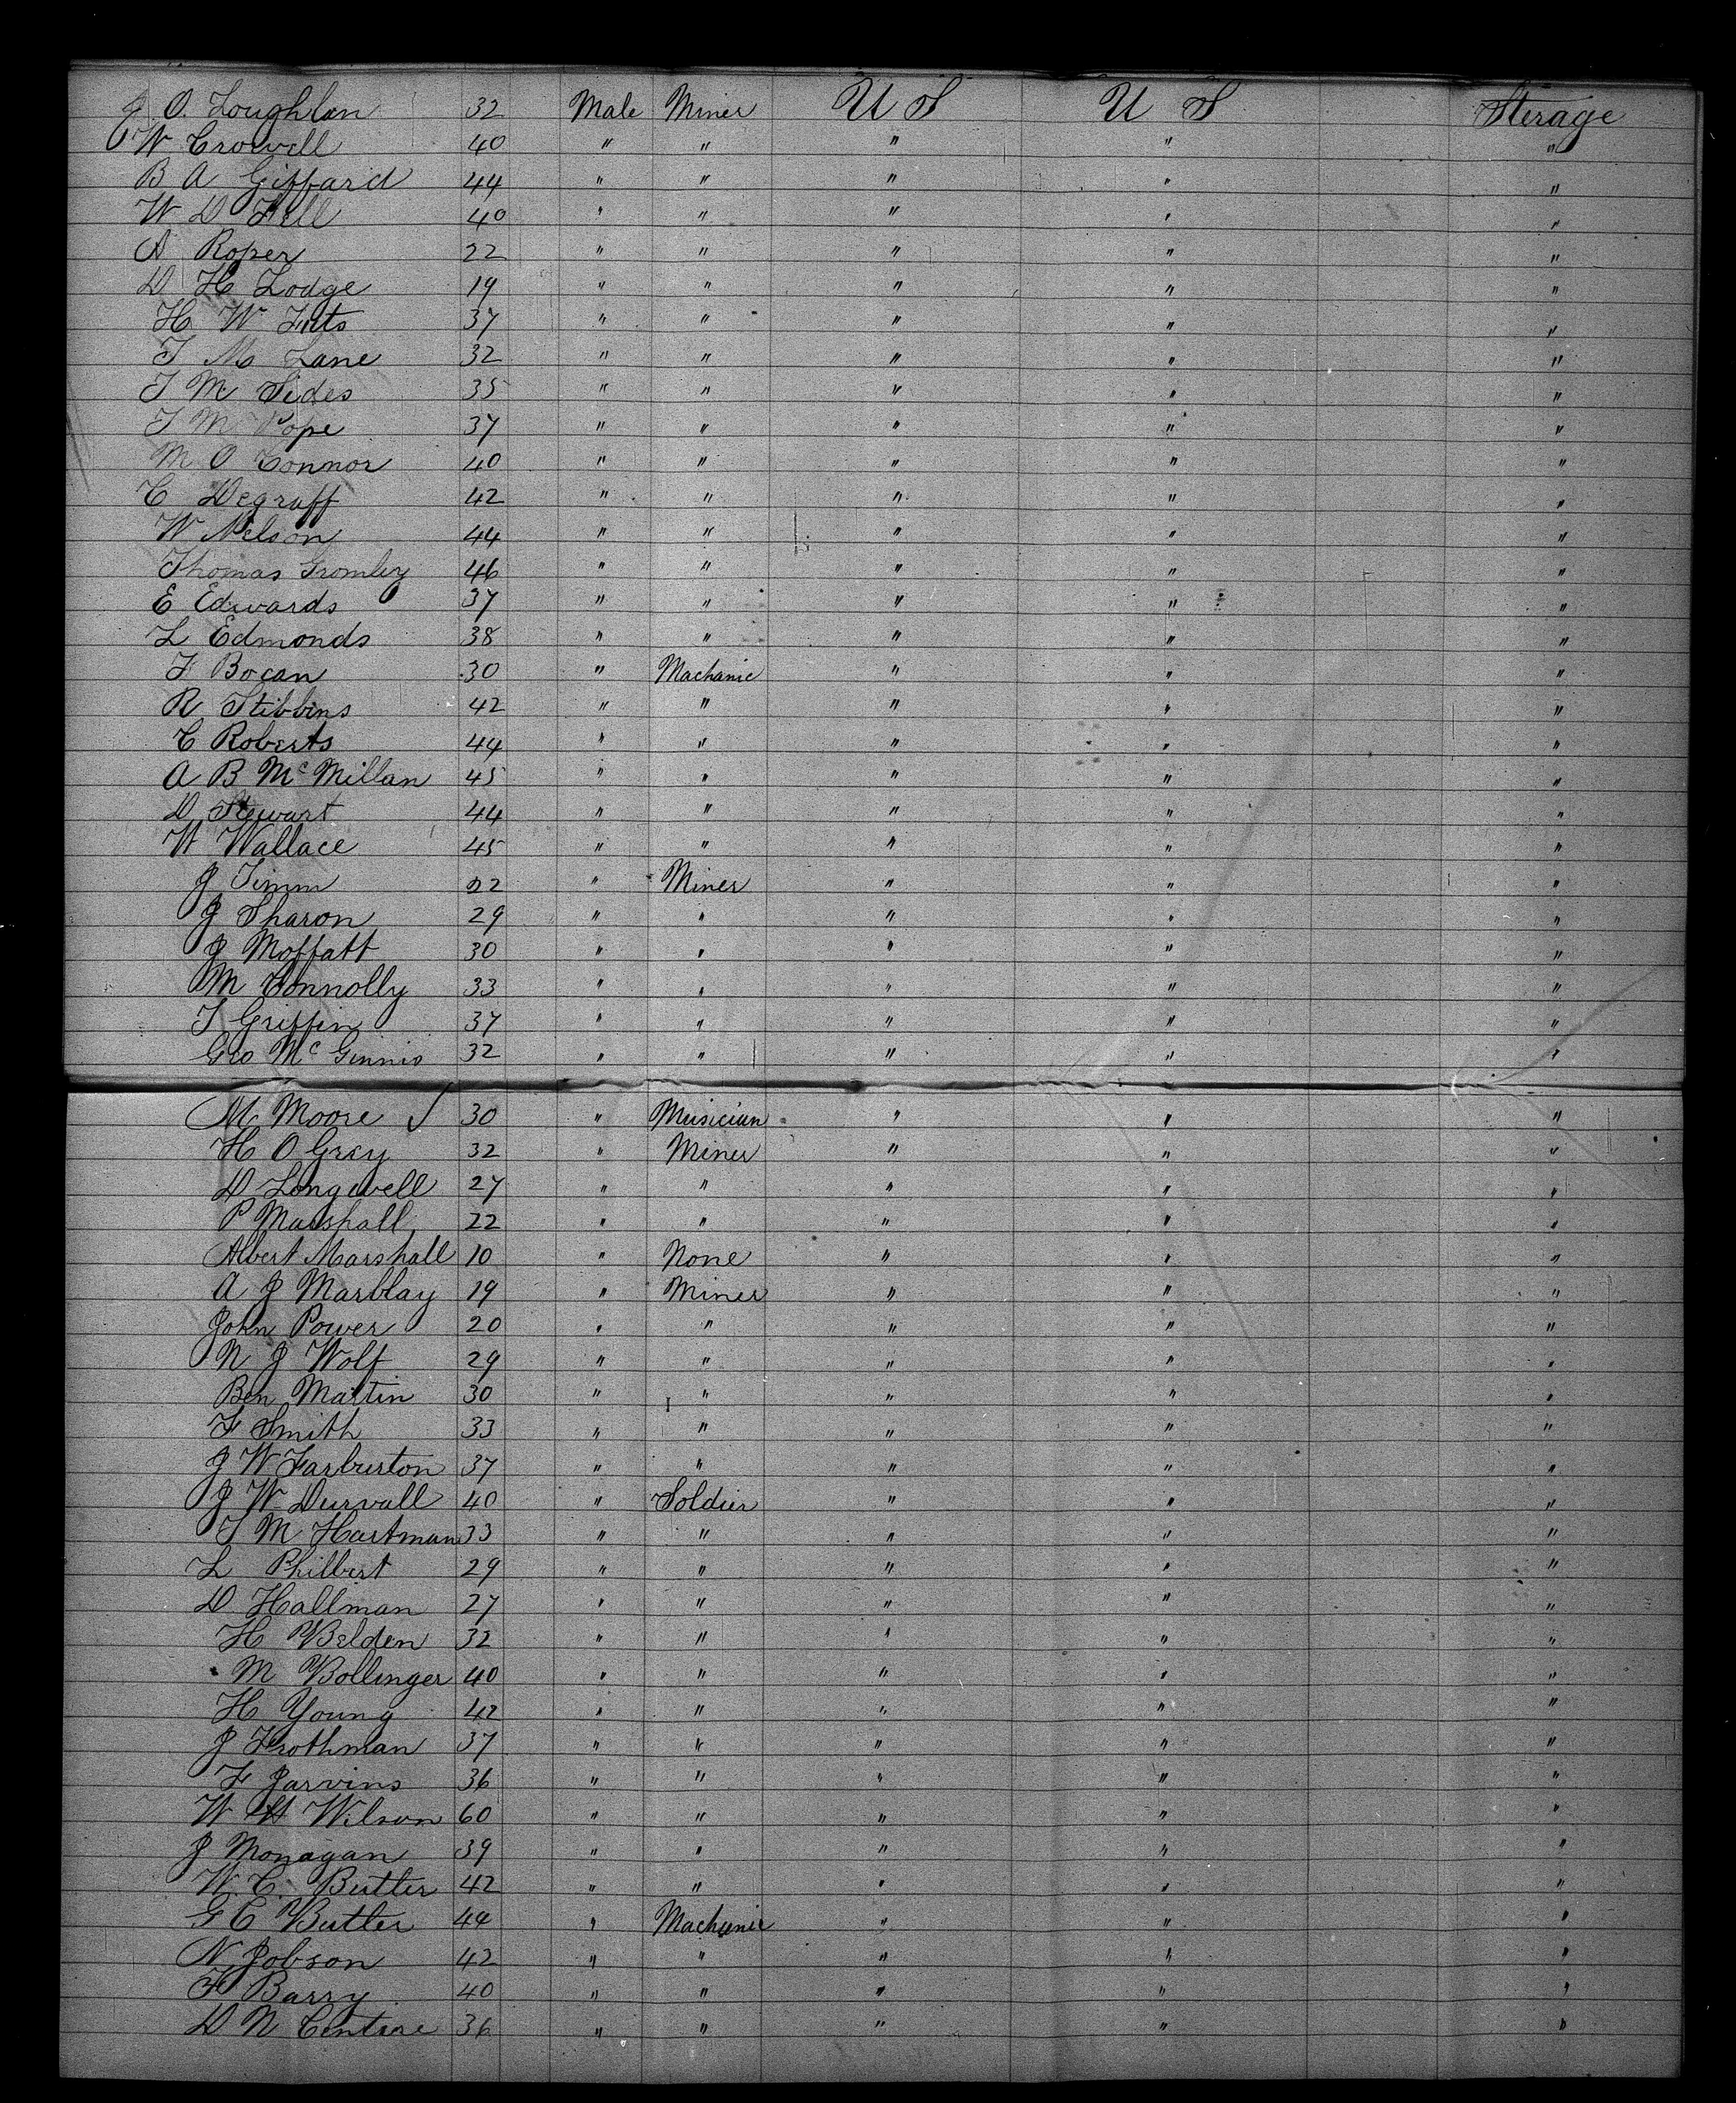 J O. Loughlan 32 Male Miner U S U S Sterage
W Crowell 40 " " " " "
B A Giffard 44 " " " " "
W D Fell 40 " " " " "
A Roper 22 " " " " "
D H Lodge 19 " " " " "
H W Futs 37 " " " " "
T M Lane 32 " " " " "
T M Sides 35 " " " " "
T M Pope 37 " " " " "
M O Connor 40 " " " " "
C Degraff 42 " " " " "
W Nelson 44 " " " " "
Thomas Gromley 46 " " " " "
E Edwards 37 " " " " "
L Edmonds 38 " " " " "
F Bocan 30 " Machanic " " "
R Stibbins 42 " " " " "
C Roberts 44 " " " " "
A B Mc Millan 45 " " " " "
D Stewart 44 " " " " "
W Wallace 45 " " " " "
J Timm 22 " Miner " " "
J Sharon 29 " " " " "
J Moffatt 30 " " " " "
M Connolly 33 " " " " "
T Griffin 37 " " " " "
Geo Mc Ginnis 32 " " " " "
M Moore ✓ 30 " Musician " " "
H O Gray 32 " Miner " " "
D Longwell 27 " " " " "
P Marshall 22 " " " " "
Albert Marshall 10 " None " " "
A J Marblay 19 " Miner " " "
John Power 20 " " " " "
N J Wolf 29 " " " " "
Ben Martin 30 " " " " "
F Smith 33 " " " " "
J W Farburton 37 " " " " "
J W Durvall 40 " Soldier " " "
T M Hartman 33 " " " " "
L Philbert 29 " " " " "
D Hallman 27 " " " " "
H Belden 32 " " " " "
M Bollinger 40 " " " " "
H Young 42 " " " " "
J Frothman 37 " " " " "
F Jarvins 36 " " " " "
W H Wilson 60 " " " " "
J Monagan 39 " " " " "
W. C. Butler 42 " " " " "
G C Butler 44 " Machanic " " "
N Jobson 42 " " " " "
F Barry 40 " " " " "
D N Centire 36 " " " " "